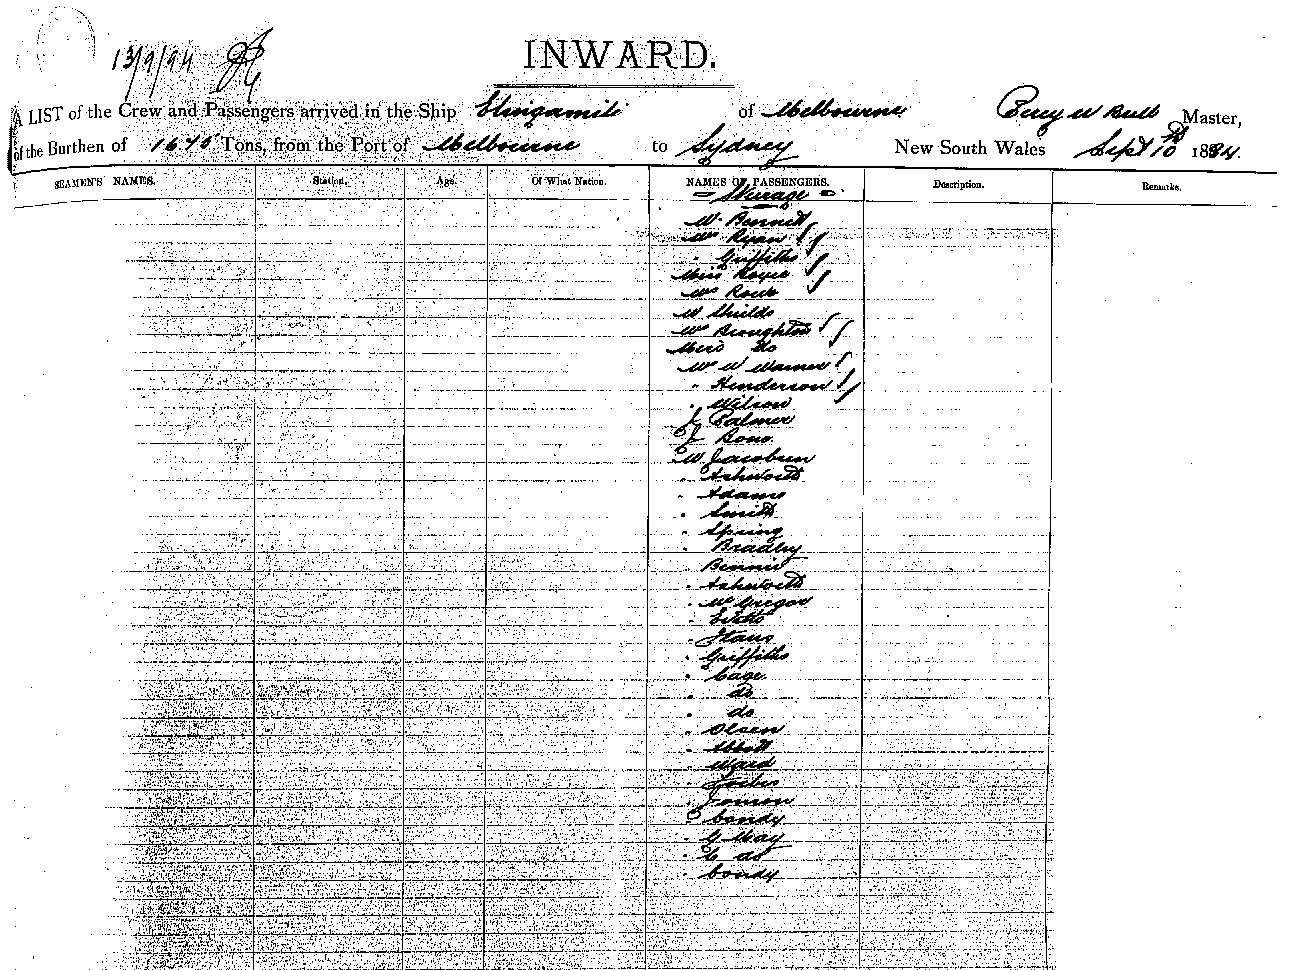 13/9/94
INWARD.
A LIST of the Crew and Passengers arrived in the Ship Elingamite of Melbourne Percy W Bull Master,
of the Burthen of 1675 Tons, from the Port of Melbourne to Sydney New South Wales Sept 10th 1894.
SEAMEN'S NAMES. Station. Age. Of What Nation. NAMES OF PASSENGERS. Description. Remarks.
= Steerage =
W. Bennett
Mrs Ryan
" Griffiths
Miss
Mrs Rowe
W Shields
Mrs Broughton
Miss do
Mr W Warner
" Henderson
" Wilson
J Palmer
J
W Jacobsen
" Ashworth
" Adams
" Smith
" Spring
" Bradley
Bennie
" Ashworth
" McGregor
"
"
" Griffiths
" Cage
" do
" do
" Olsen
" Abbott
" Ward
" Forbes
"
Condy
" G May
" do
" Condy